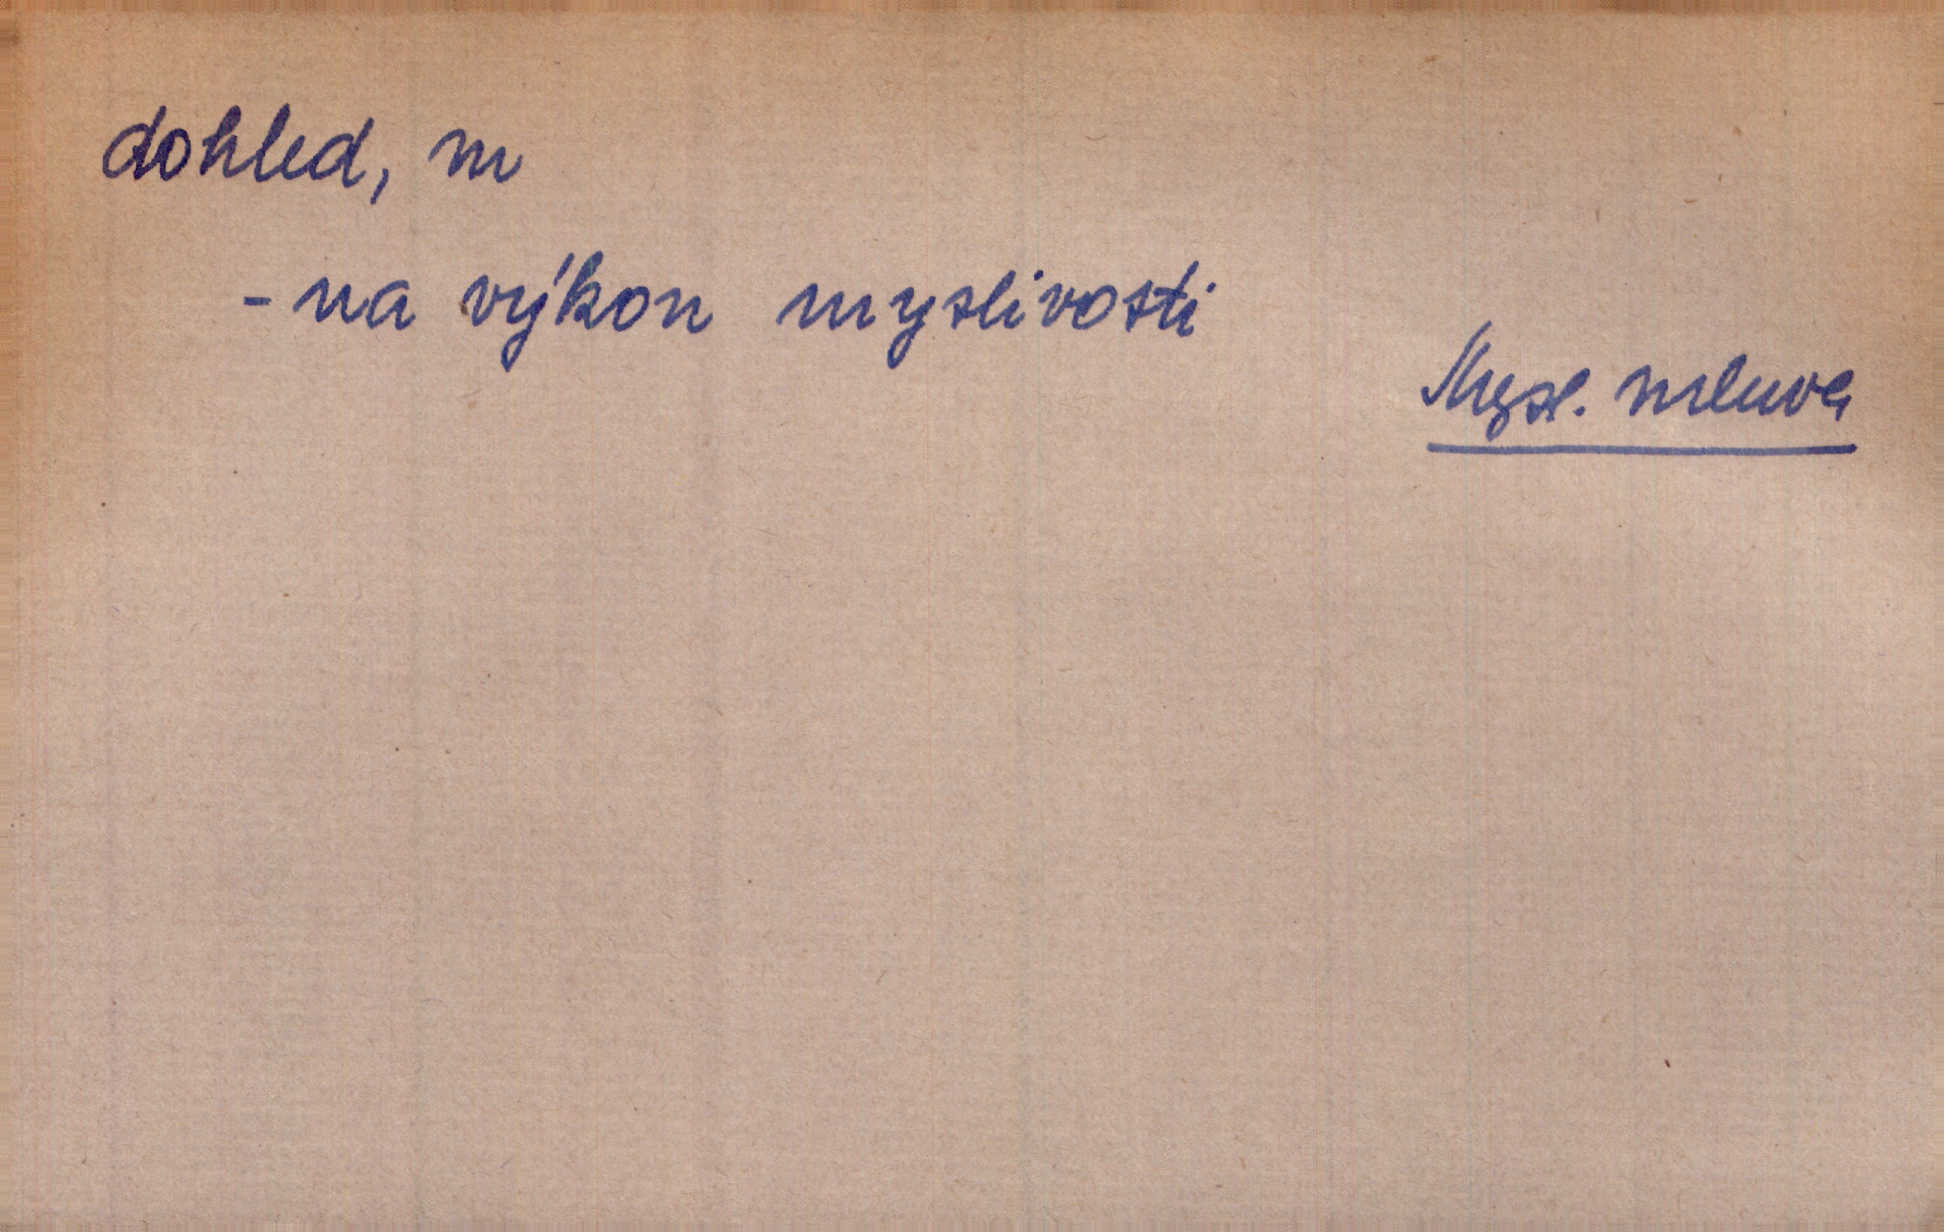 dohled, m
- na výkon myslivosti
Mysl. mluva